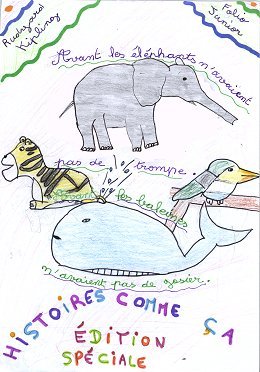 Rudyard
Kipling
Folio
Junior
Avant les éléphants n'avaient
pas de trompe.
Avant les baleines
n'avaient pas de gosier.
HISTOIRES COMME ÇA
ÉDITION
SPÉCIALE